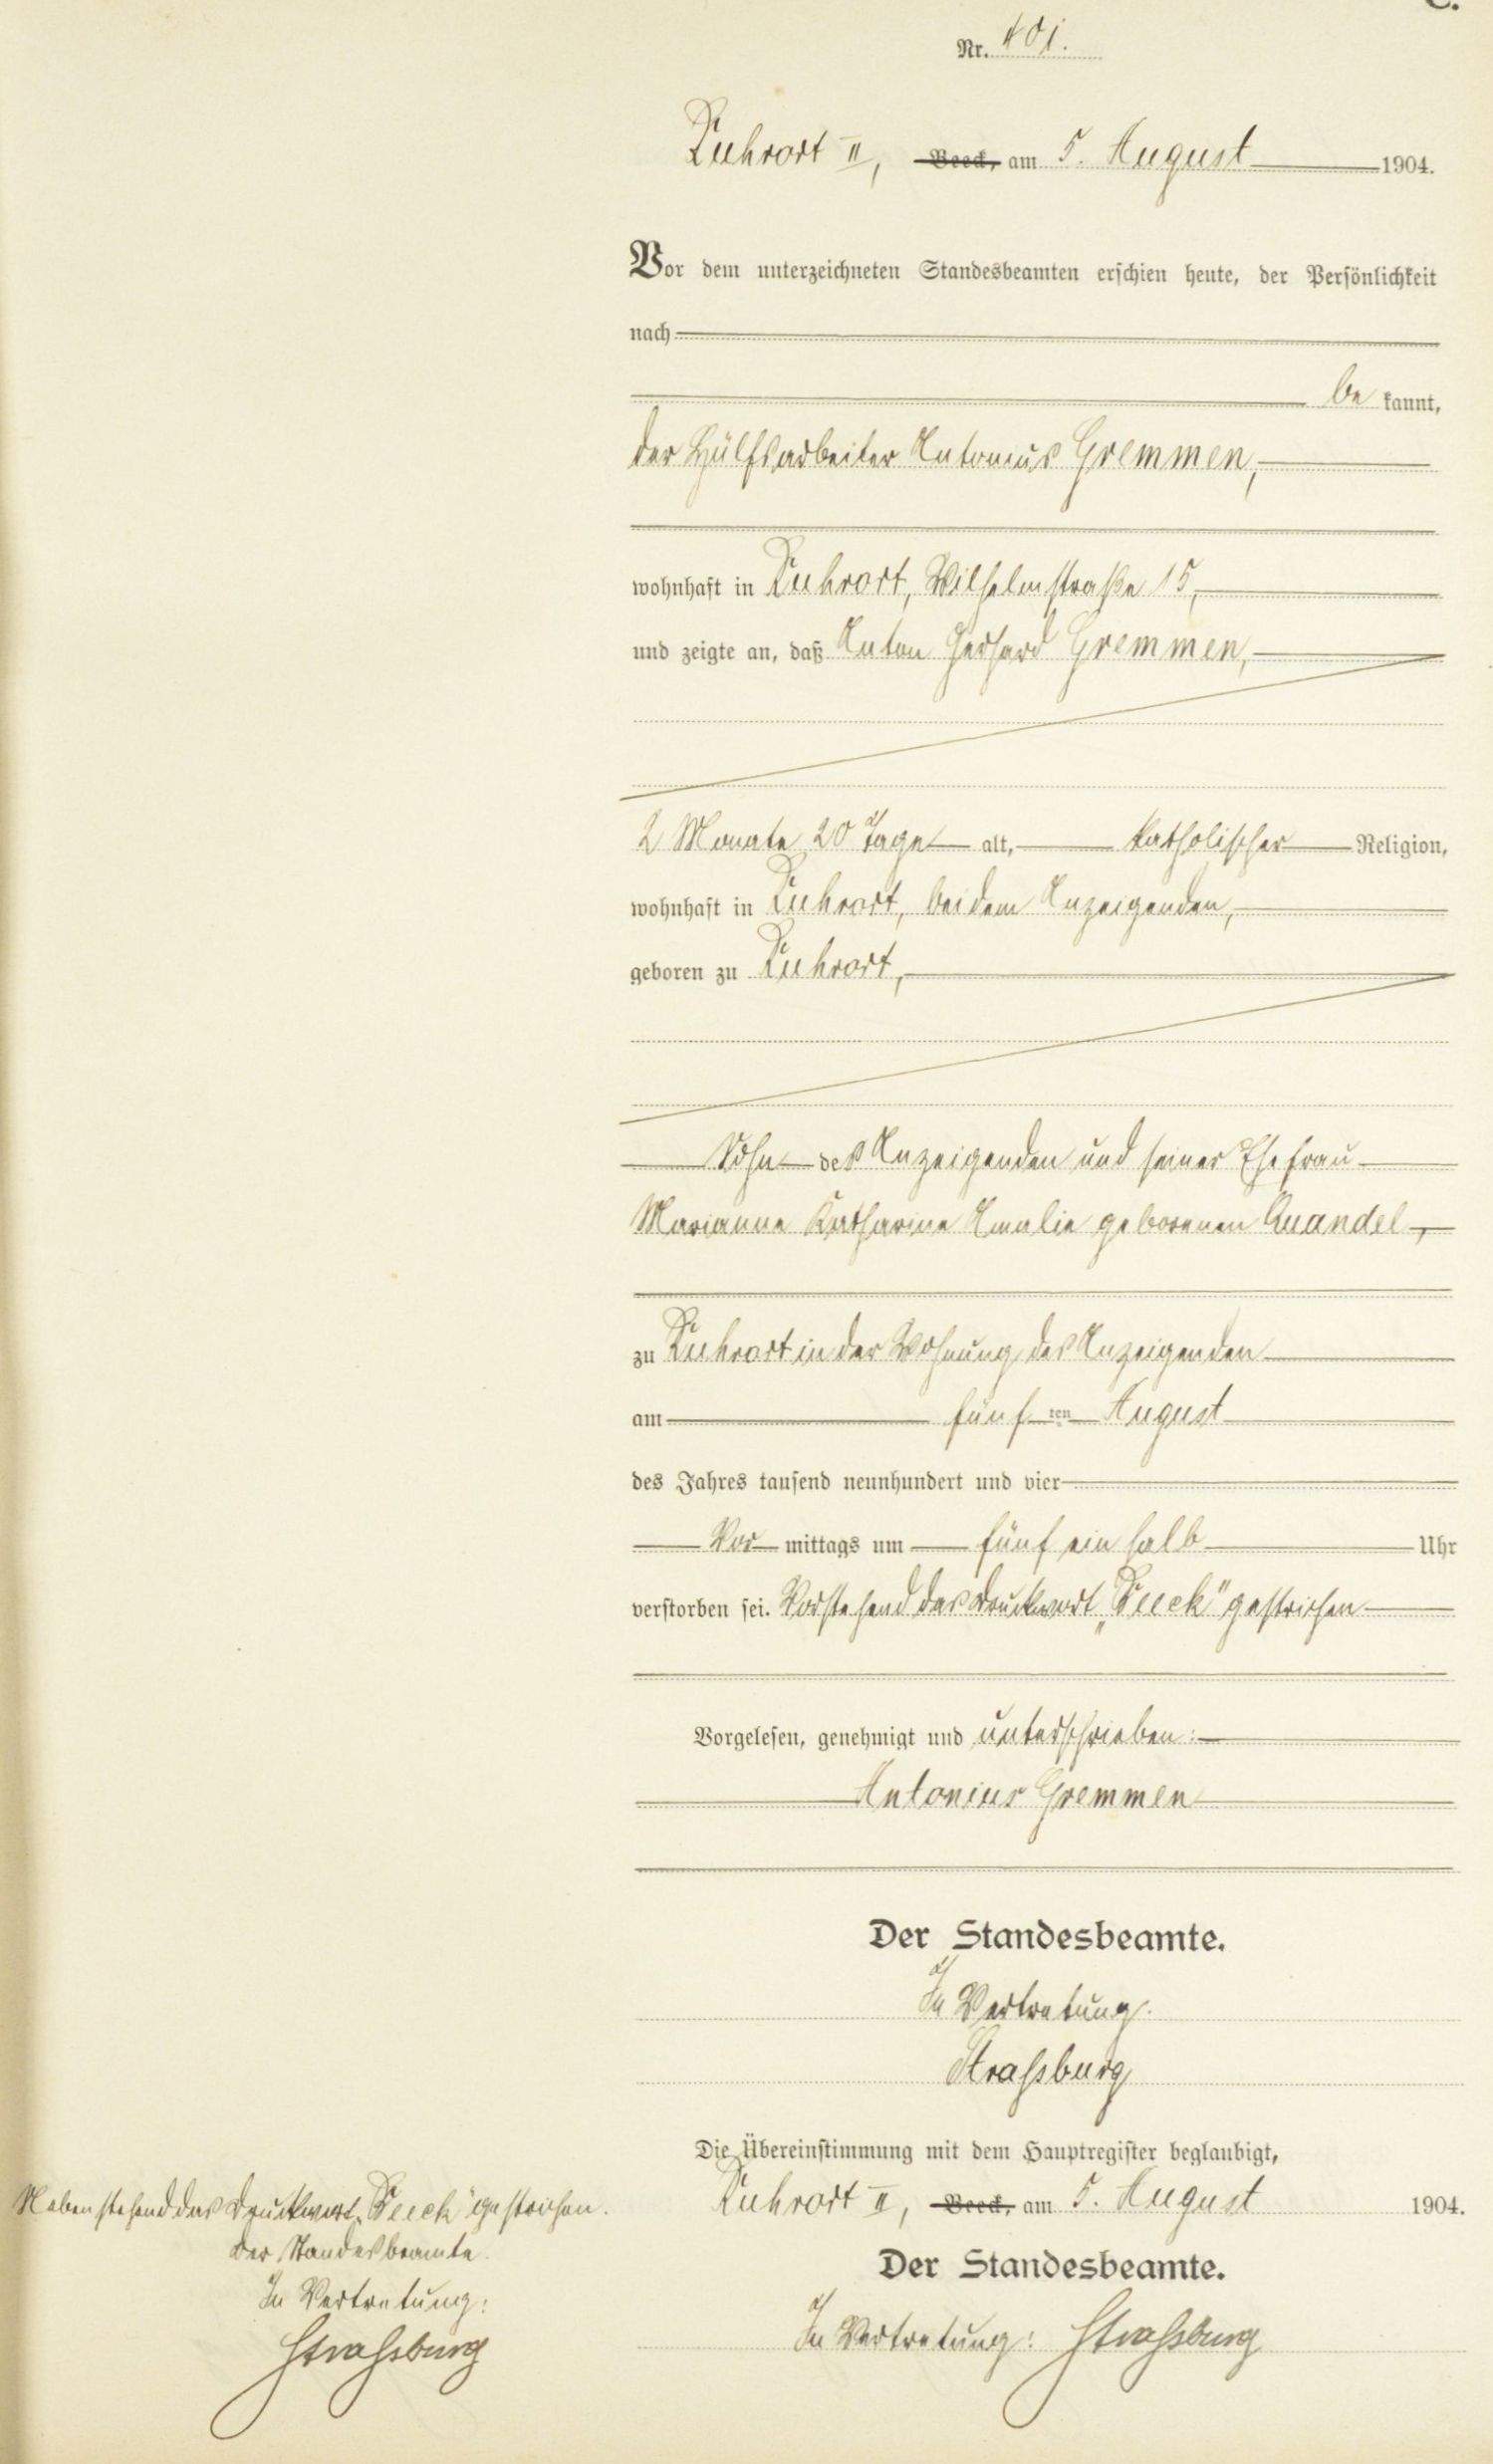 C.
Nr. 401.
Ruhrort II, Beeck, am 5. August 1904.
Vor dem unterzeichneten Standesbeamten erschien heute, der Persönlichkeit
nach
be kannt,
der Hülfsarbeiter Antonius Gremmen,
wohnhaft in Ruhrort, Wilhelmstraße 15,
und zeigte an, daß Anton Gerhard Gremmen,
2 Monate 20 Tage alt, katholischer Religion,
wohnhaft in Ruhrort, bei dem Anzeigenden,
geboren zu Ruhrort,
Sohn des Anzeigenden und seiner Ehefrau
Marianne Katharine Amalie geborenen Quandel,
zu Ruhrort in der Wohnung des Anzeigenden
am fünf ten August
des Jahres tausend neunhundert und vier
Vor mittags um fünf ein halb Uhr
verstorben sei. Vorstehend das Druckwort „Beeck" gestrichen
Vorgelesen, genehmigt und unterschrieben:
Antonius Gremmen
Der Standesbeamte.
In Vertretung.
Straßburg
Die Übereinstimmung mit dem Hauptregister beglaubigt,
Ruhrort II, Beeck, am 5. August 1904.
Der Standesbeamte.
In Vertretung: Straßburg
Nebenstehend das Druckwort „Beeck" gestrichen.
Der Standesbeamte.
In Vertretung:
Straßburg